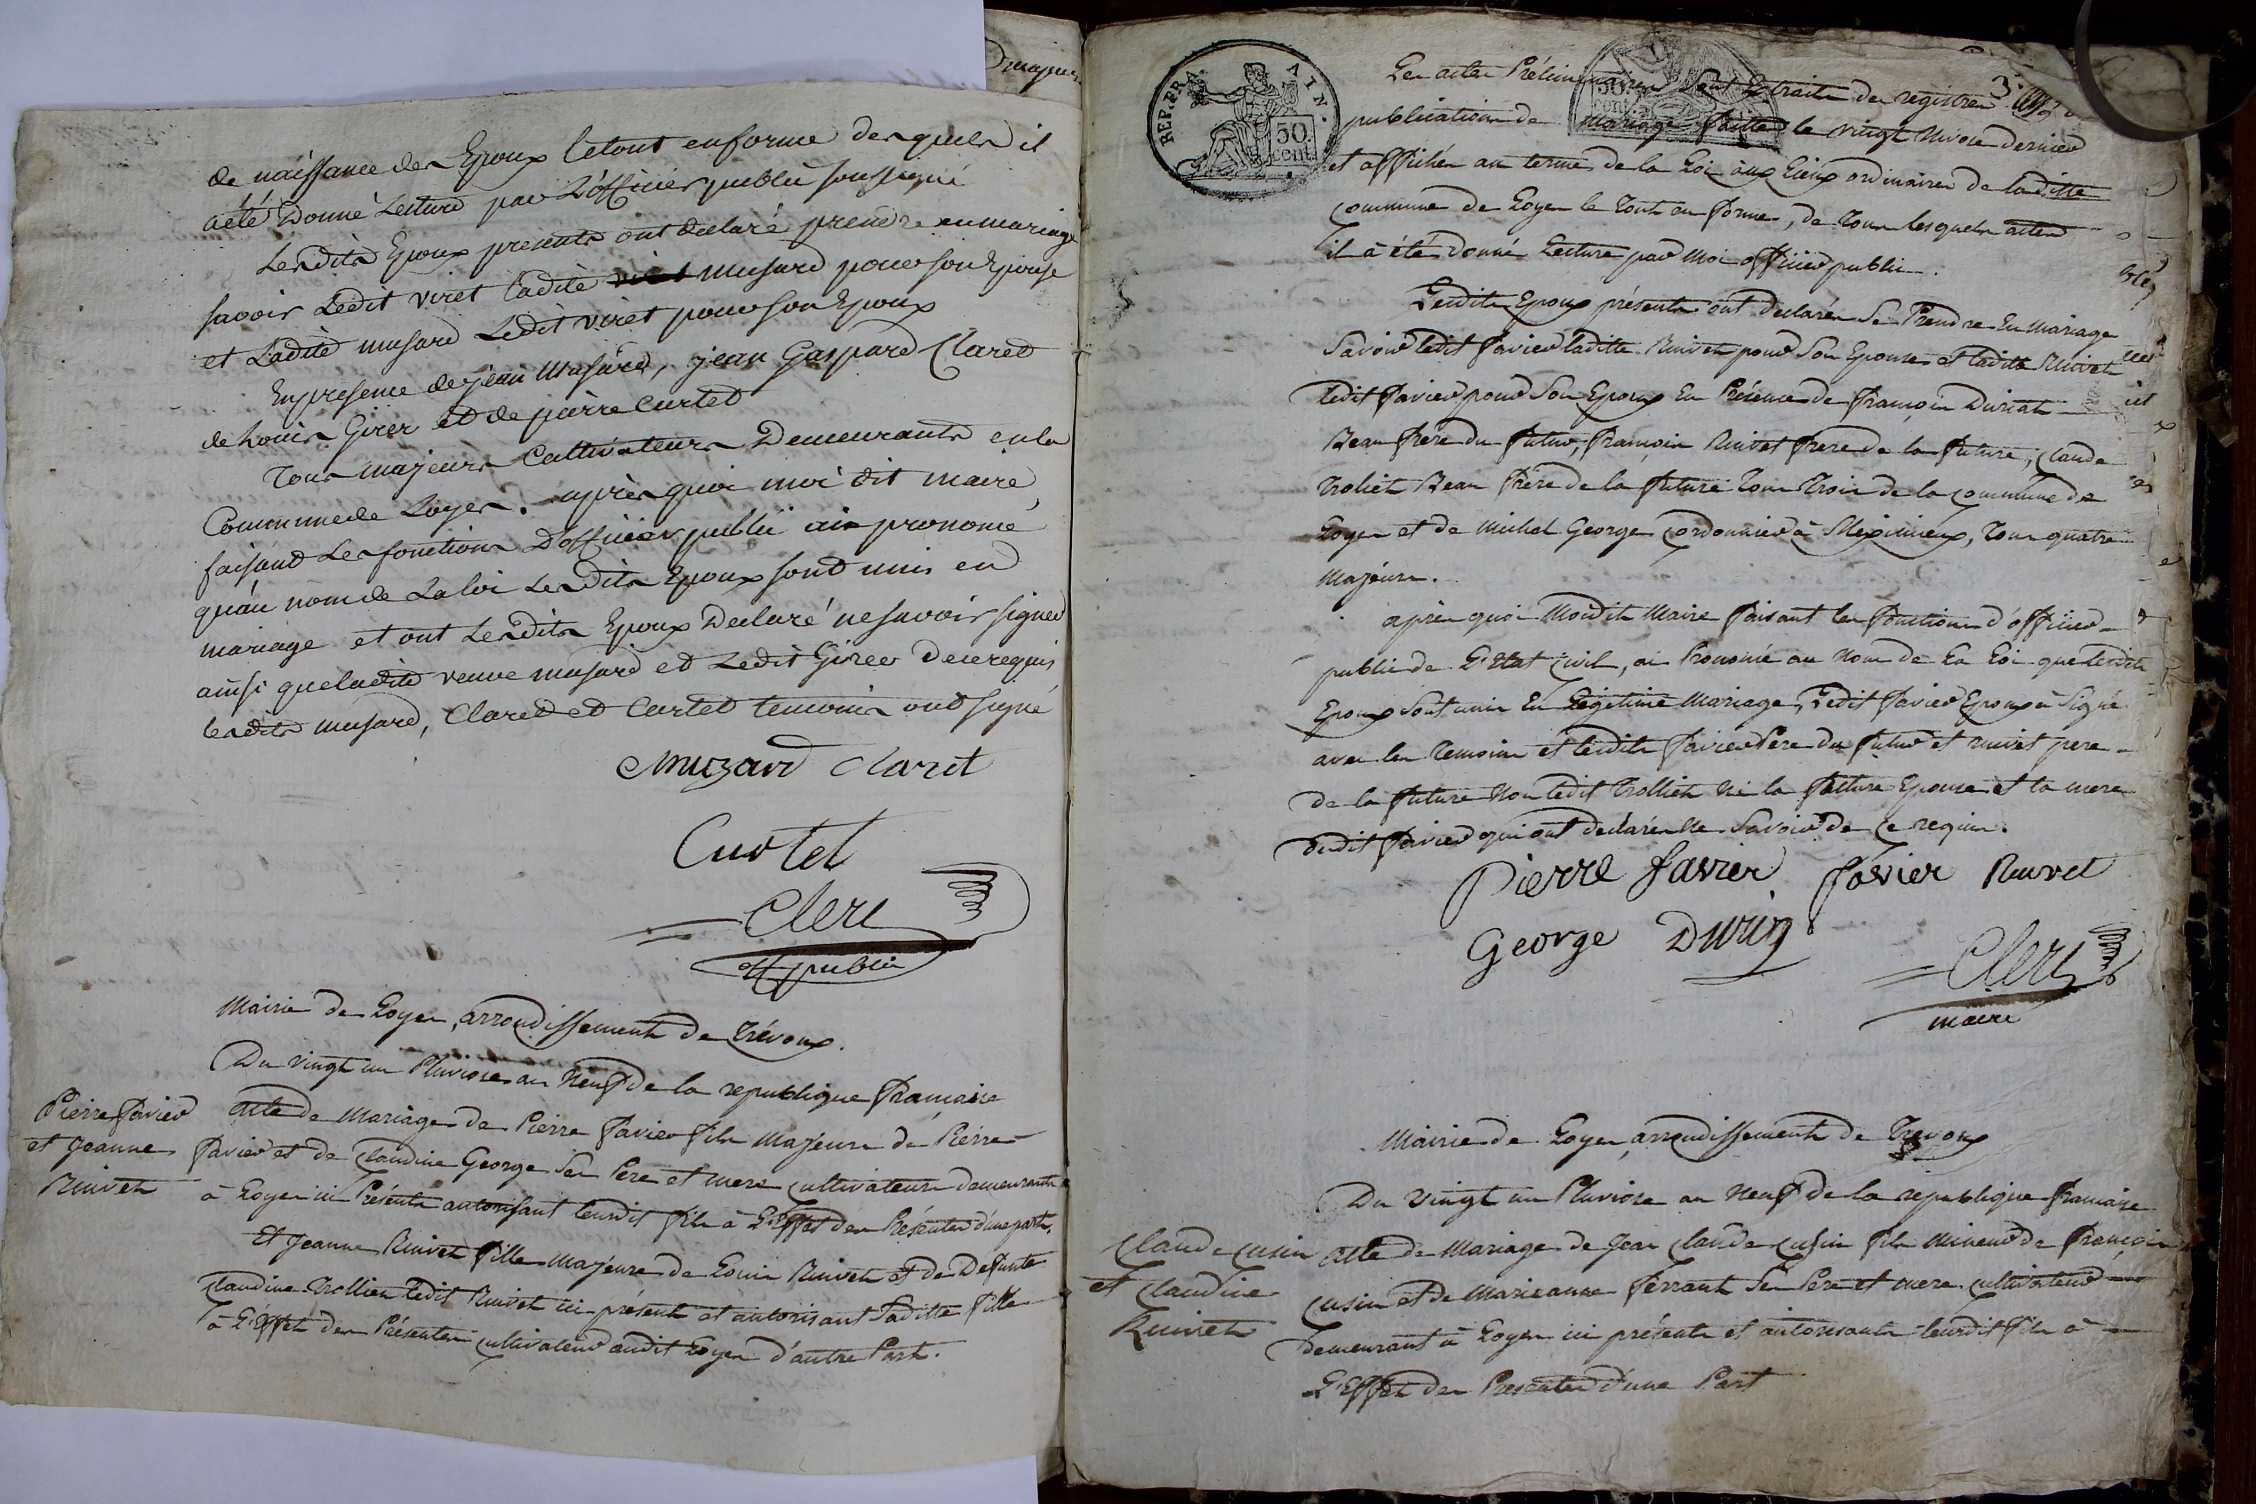 de naissance des Epoux le tout en forme desquels il
a été Donné Lecture par L'officier public soussigné
Lesdits Epoux presents ont declaré prendre en mariage
savoir Ledit viret ladite musard pour son Epouse
et Ladite musard Ledit viret pour son Epoux
En presence de jean Musard, jean Gaspard Claret
de Louis Girer et de pierre Curtet
Tous majeurs Cultivateurs Demeurants en la
Commune de Loyes. après quoi moi dit maire,
faisant Les fonctions D'officier public ai prononcé
qu'au nom de La loi Lesdits Epoux sont unis en
mariage et ont Lesdits Epoux Declaré ne savoir signer
ainsi que ladite veuve musard et Ledit Girer De ce requis
lesdits musard, Claret et Curtet temoins ont signé
Muzard Claret
Curtet
Clerc
off public
Mairie de Loyes, arrondissement de Trévoux.
Du vingt un Pluviose an Neuf de la republique francaise
Pierre favier
et jeanne
Ruivet
Acte de Mariage de Pierre favier fils Majeure de Pierre
favier et de Claudine George Ses Pere et mere cultivateurs demeurants
à Loyes ici Présents autorisant leurdit fils à L'Effet des Présentes d'une part,
Et jeanne Ruivet fille Majeure de Louis Ruivet et de Defunte
Claudine Trollien ledit Ruivet ici présent et autorisant Saditte fille
à L'Effet des Présentes cultivateur audit Loyes d'autre Part.
REP. FRA.
AIN.
50 cent.
3
Les actes Préliminaires Sont Extraits des registres
publications de mariage faitte le vingt Nivose Dernier
et affichés au terme de la Loi aux Lieux ordinaires de laditte
commune de Loyes le Tout en forme, de Tous lesquels actes
il à été donné Lecture par Moi officier public.
Lesdits Epoux présents ont declarés Se Prendre En Mariage
Savoir ledit favier laditte Ruivet pour Son Epouse et laditte Ruivet
ledit favier pour Son Epoux En Présence de françois Duriat
Beau frere du futur, françois Ruivet frere de la future, Claude
Troliet Beau frere de la future Tous Trois de la commune de
Loyes et de Michel George Cordonnier à Meximieux, Tous quatre
Majeurs.
après quoi Moidit Maire faisant les fonctions d'officier
public de L'Etat Civil, ai Prononcé au Nom de La Loi que lesdits
Epoux Sont unis En Légitime Mariage, Ledit favier Epoux à Signé
avec les Temoins et lesdits favier Pere du futur et ruivet pere
de la future Non ledit Trolliet Ni la future Epouse et la mere
dudit favier qui ont declarés Ne Savoir de Ce requis.
Pierre favier favier Ruivet
George Duriq
Clerc
maire
Mairie de Loyes, arrondissement de Trevoux
Du vingt un Pluviose an Neuf de la republique francaise
Claude cusin
et Claudine
Ruivet
Acte de Mariage de Jean Claude cusin fils Mineur de françois
cusin et de Marieanne ferrant Ses Pere et mere cultivateur
demeurant à Loyes ici présents et autorisants leurdit fils à
L'Effet des Presentes d'une Part